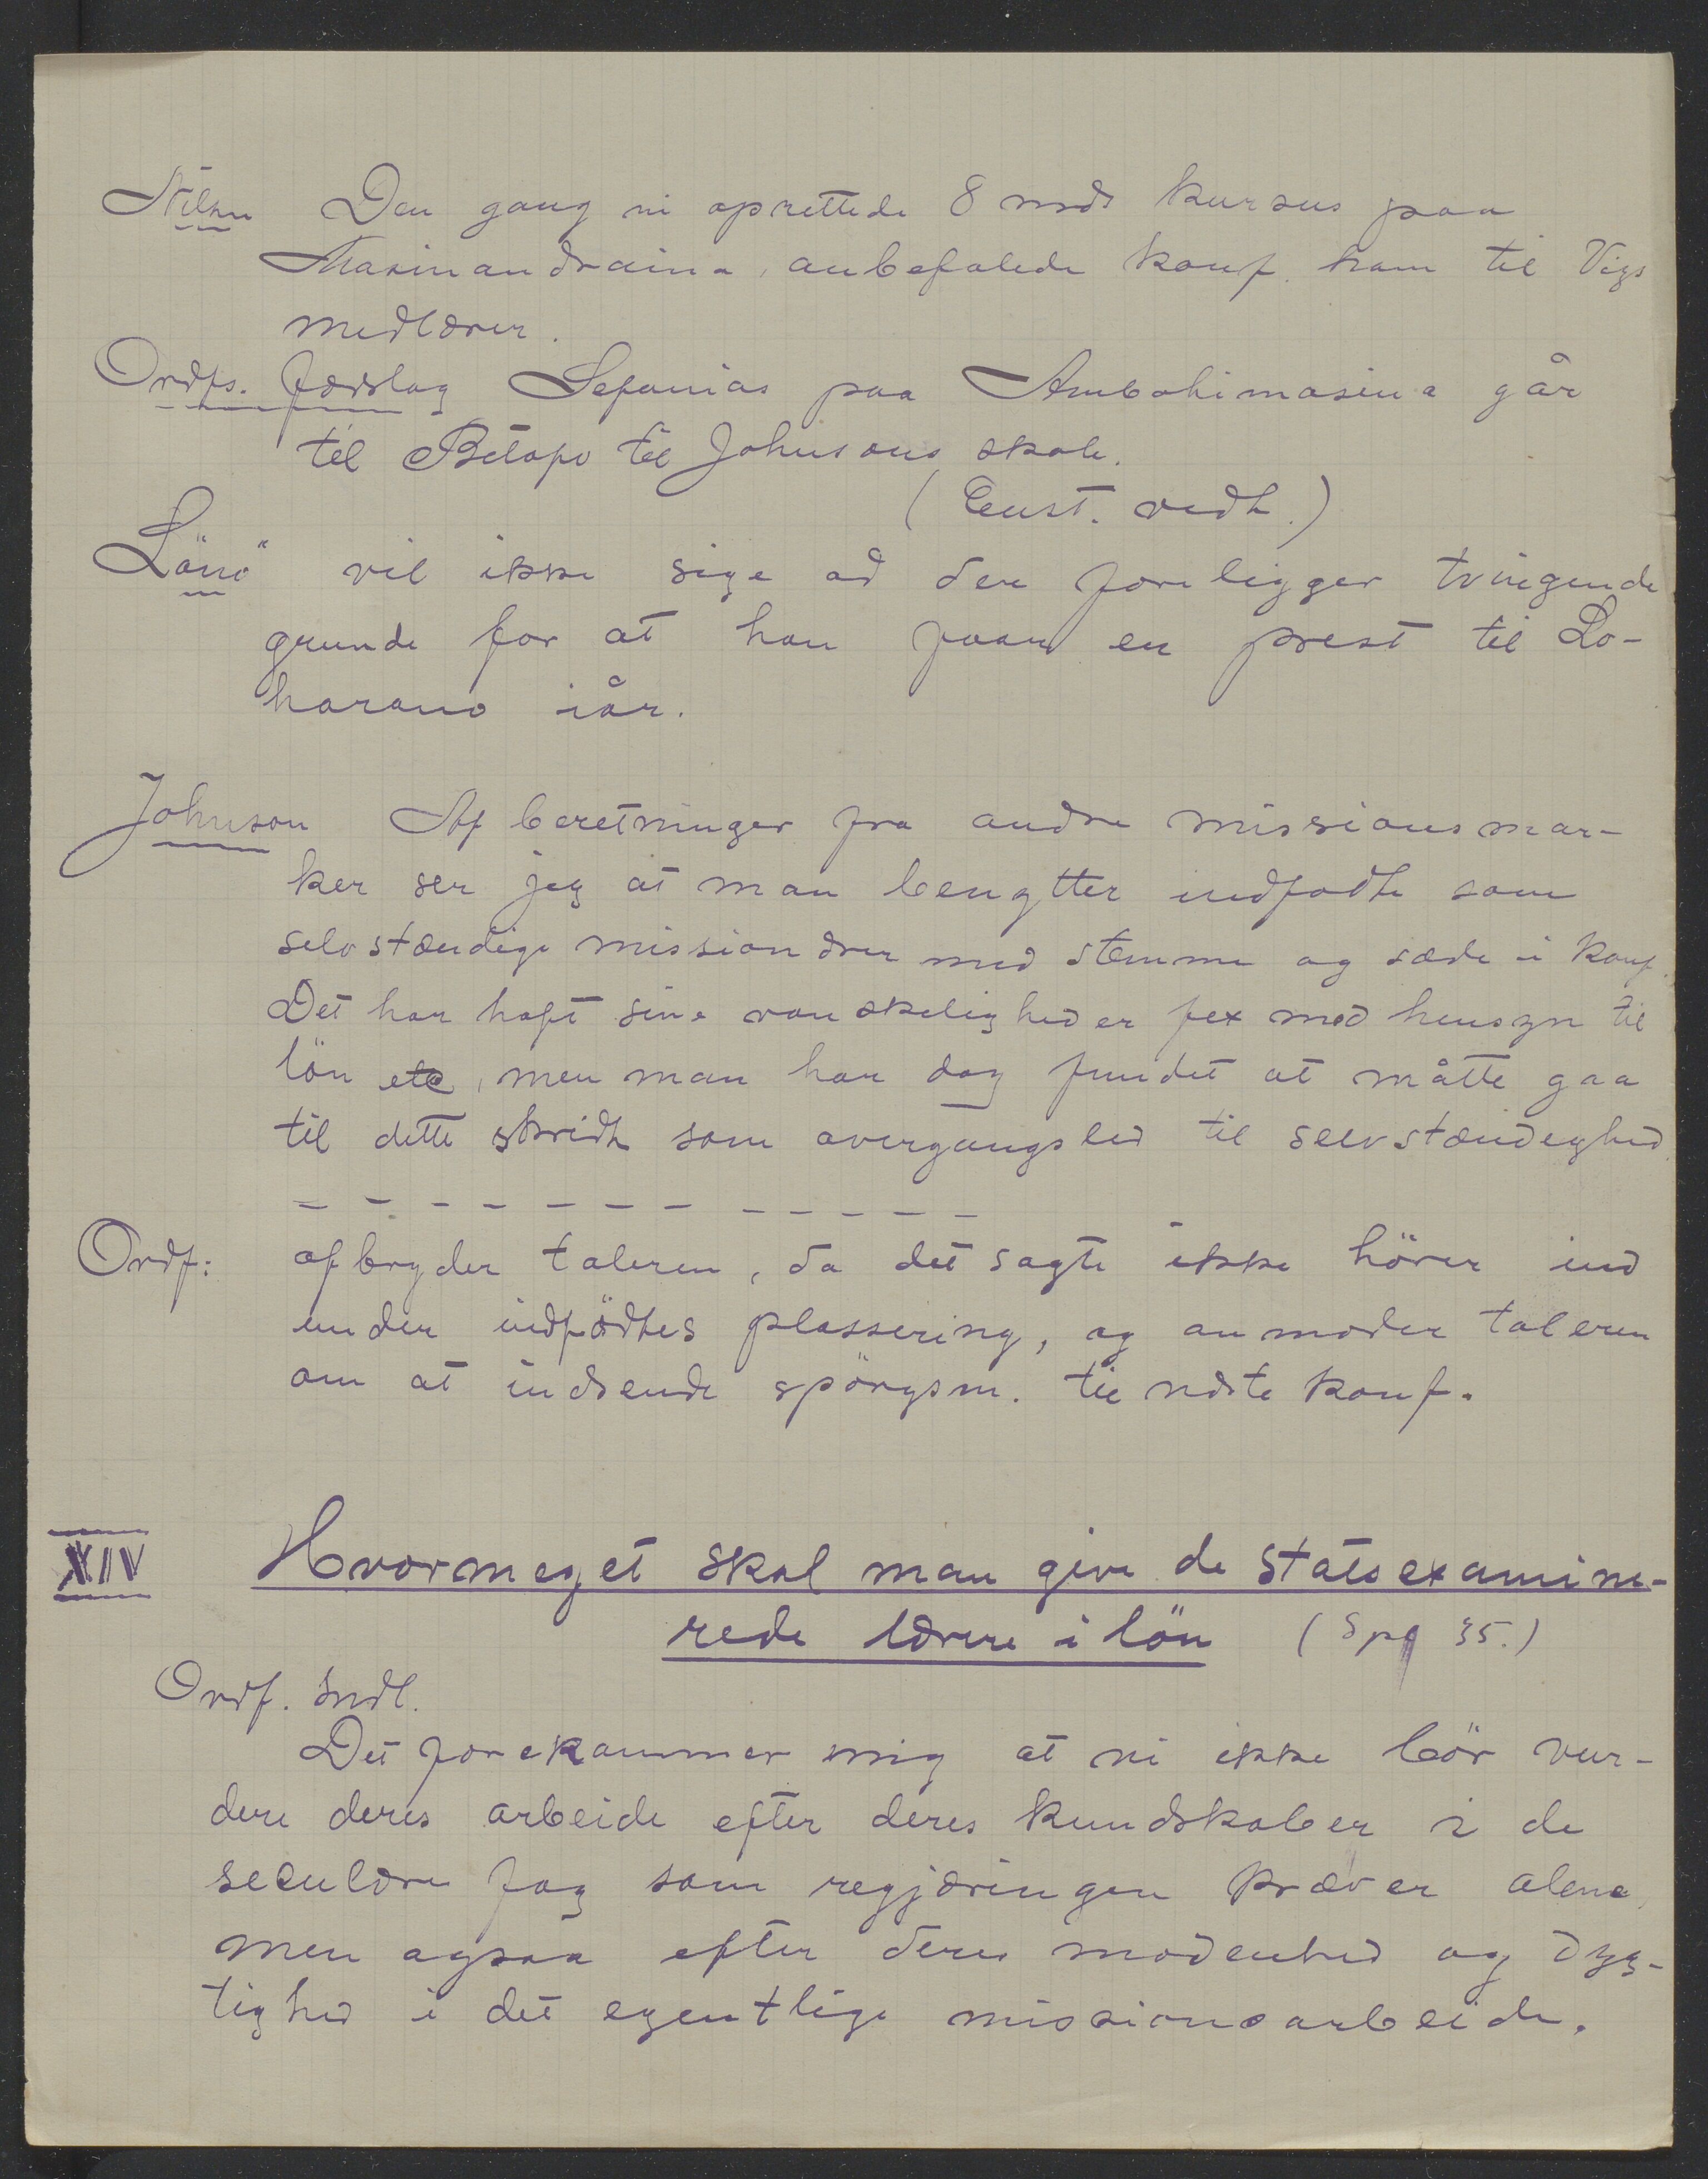 Nilsen Den gang vi oprettede 8 mds kursus paa
Masinandraina, anbefalede konf. ham til Vigs
medlærer.
Ordfs. forslag Sefanias paa Ambohimasina går
til Betafo til Johnsons skole.
(Enst. vedt.)
Lönö vil ikke sige at der foreligger tvingende
grunde for at han faar en prest til Lo-
harano iår.
Johnson Af beretninger fra andre missionsmar-
ker ser jeg at man benytter indfødte som
selvstændige missionærer med stemme og sæde i konf.
Det har haft sine vanskeligheder fex med hensyn til
lön etc, men man har dog fundet at måtte gaa
til dette skridt som overgangsled til selvstændighed.
– – – – – – – – – – – –
Ordf: afbryder taleren, da det sagte ikke hörer ind
under indfödtes plassering, og anmoder taleren
om at indsende spörgsm. til næste konf.
XIV Hvormeget skal man give de statsexamine-
rede lærere i lön (Spg 35.)
Ordf. Indl.
Det forekommer mig at vi ikke bör vur-
dere deres arbeide efter deres kundskaber i de
seculære fag som regjæringen prøver alene,
men ogsaa efter deres modenhed og dyg-
tighed i det egentlige missionsarbeide.